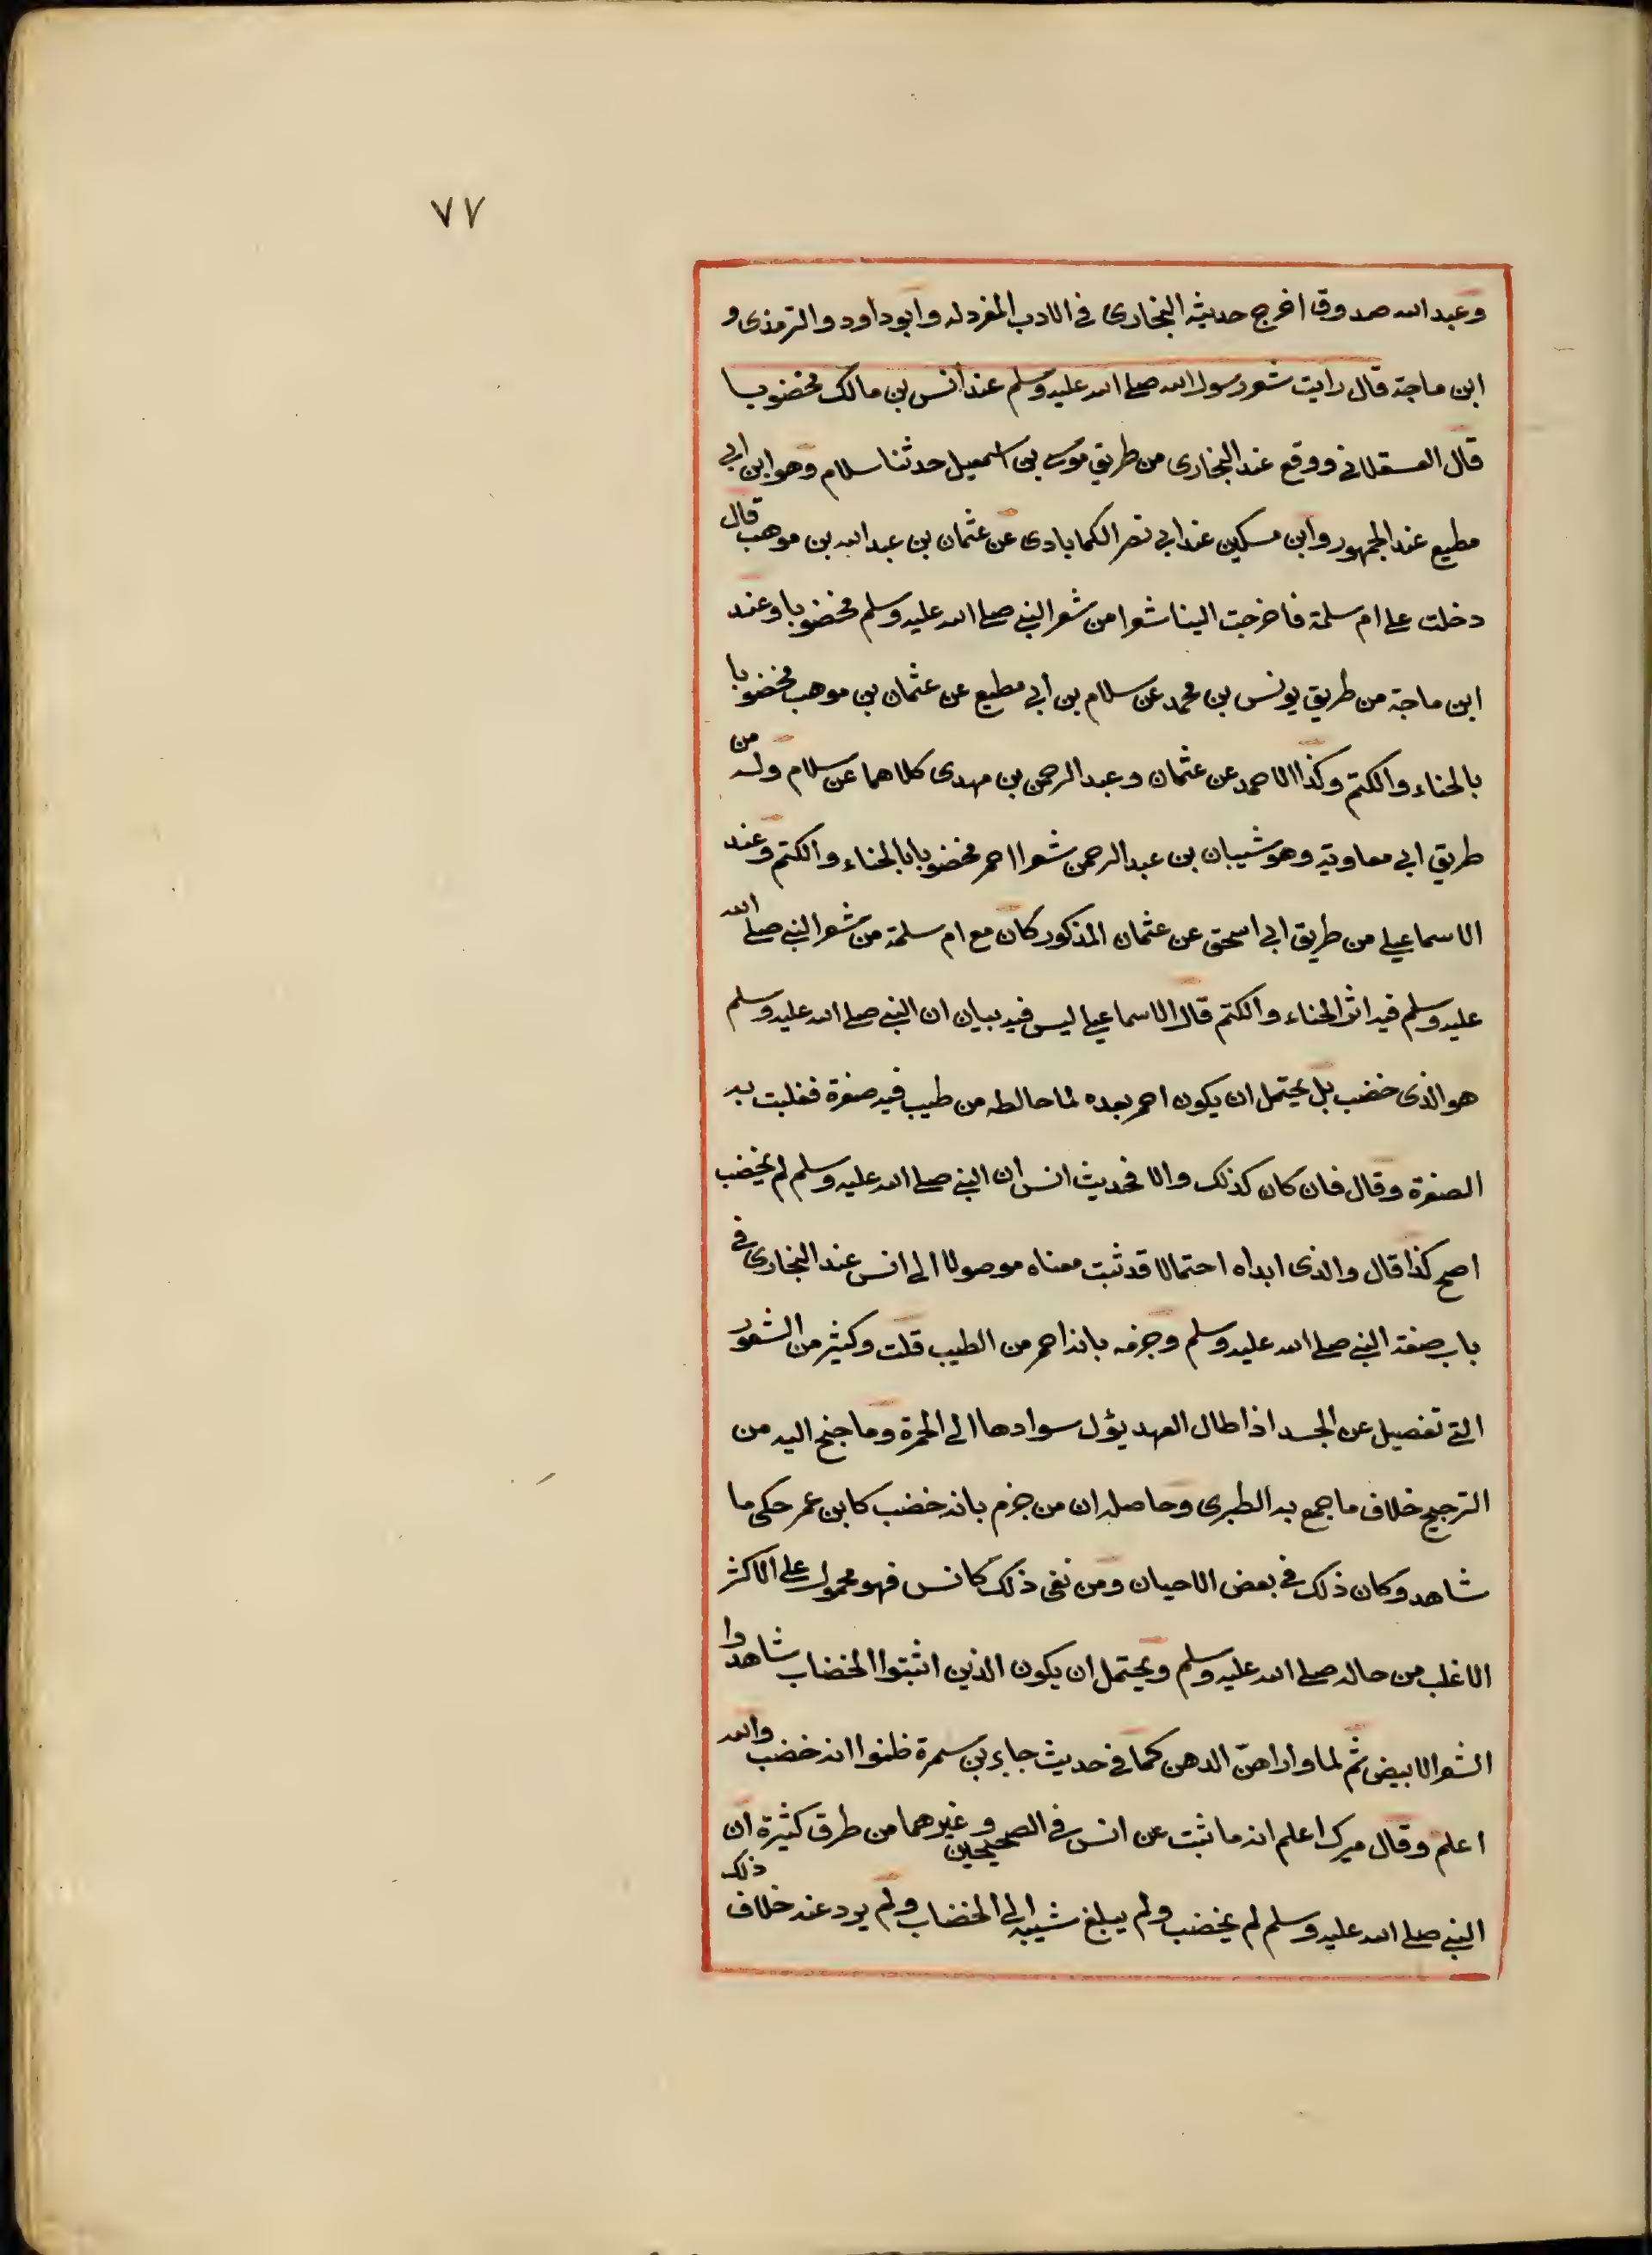 ٧٧
وعبد الله صدوق اخرج حديثه البخارى فى الادب المفرد له وابو داود والترمذى و
ابن ماجة قال رايت شعر رسول الله صلى الله عليه وسلم عند انس بن مالك مخضوبا
قال العسقلانى ووقع عند البخارى من طريق موسى بن اسمعيل حدثنا سلام وهو ابن ابى
مطيع عند الجمهور وابن مسكين عند ابى نصر الكلابادى عن عثمان بن عبد الله بن موهب قال
دخلت على ام سلمة فاخرجت الينا شعرا من شعر النبى صلى الله عليه وسلم مخضوبا وعند
ابن ماجة من طريق يونس بن محمد عن سلام بن أبى مطيع عن عثمان بن موهب مخضوبا
بالحناء والكتم وكذا لاحمد عن عثمان وعبد الرحمن بن مهدى كلاهما عن سلام وله من
طريق ابى معاوية وهو شيبان بن عبد الرحمن شعرا احمر مخضوبا بالحناء والكتم وعند
الاسماعيلى من طريق ابى اسحق عن عثمان المذكور كان مع ام سلمة من شعر النبى صلى الله
عليه وسلم فيه اثر الحناء والكتم قال الاسماعيلى ليس فيه بيان ان النبى صلى الله عليه وسلم
هو الذى خضب بل يحتمل ان يكون احمر بعده لما خالطه من طيب فيه صفرة فغلبت به
الصفرة وقال فان كان كذلك والا فحديث انس أن النبى صلى الله عليه وسلم لم يخضب
اصح كذا قال والذى ابداه احتمالا قد ثبت معناه موصولا الى انس عند البخارى فى
باب صفة النبى صلى الله عليه وسلم وجزمه بانه احمر من الطيب قلت وكثير من الشعور
التى تفصيل عن الجسد اذا طال العهد يؤل سوادها الى الحمرة وما جنح اليه من
الترجيح خلاف ما جمع به الطبرى وحاصله ان من جزم بانه خضب كابن عمر حكى ما
شاهد وكان ذلك فى بعض الاحيان ومن نفى ذلك كانس فهو محمول على الاكثر
الاغلب من حاله صلى الله عليه وسلم ويحتمل ان يكون الذين اثبتوا الخضاب شاهدوا
الشعر الابيض ثم لما واراهن الدهن كما فى حديث جابر بن سمرة ظنوا انه خضب والله
اعلم وقال ميرك اعلم انه ما ثبت عن انس فى الصحيحين وغيرهما من طرق كثيرة ان
النبى صلى الله عليه وسلم لم يخضب ولم يبلغ شيبه الى الخضاب ولم يرد عنه خلاف ذلك